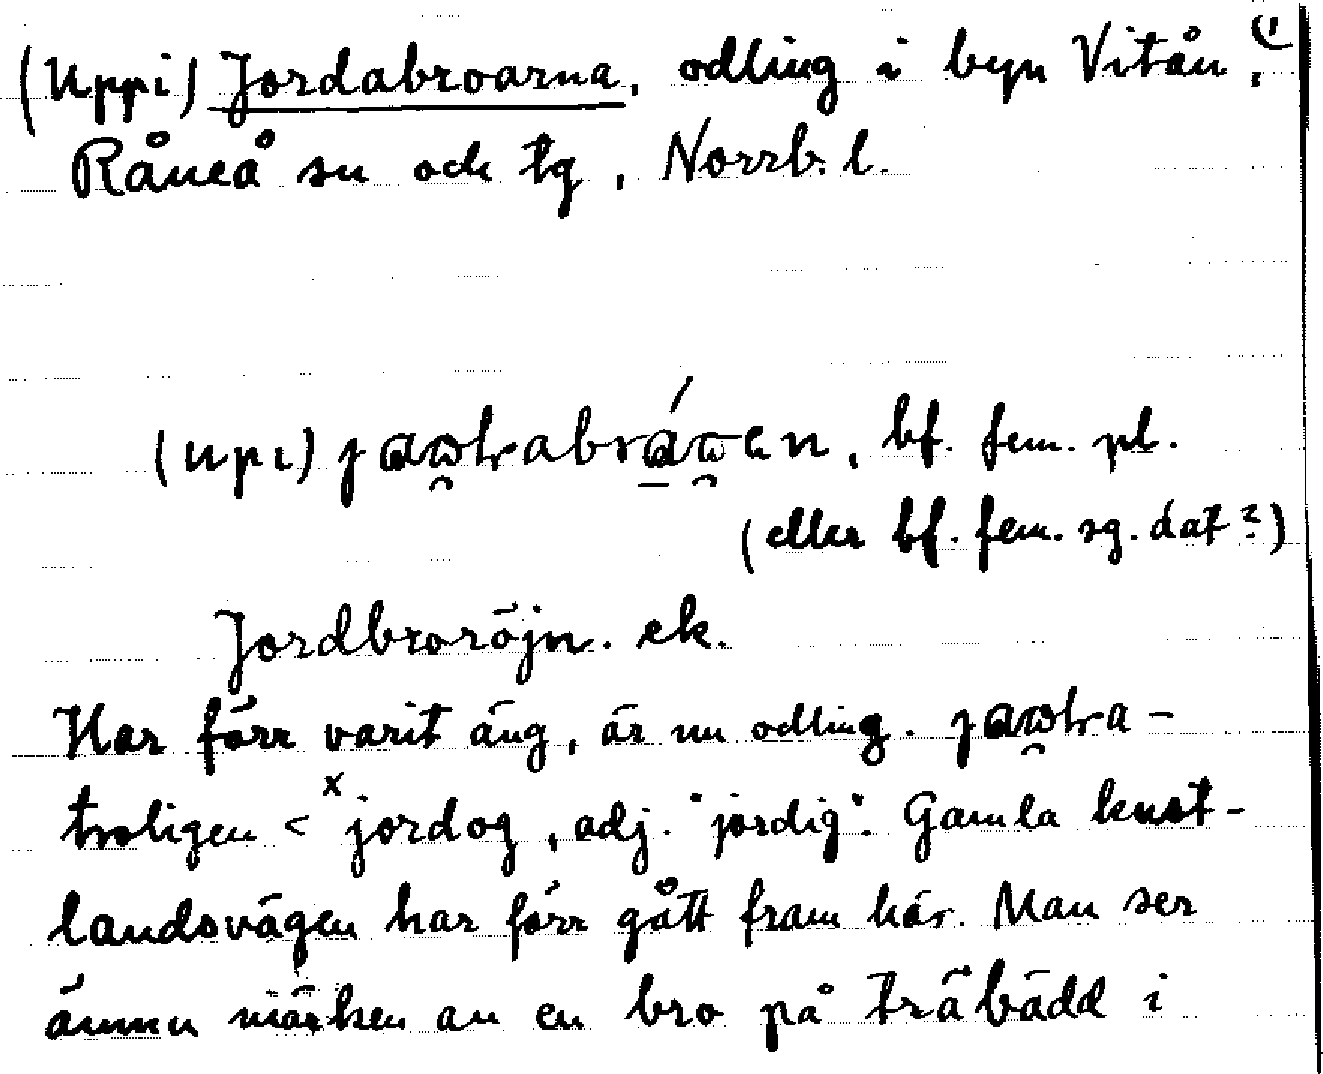 (Uppi) Jordabroarna, odling i byn Vitån, (1
Råneå sn och tg, Norrb. l.
bf. fem. pl.
(eller bf. fem. sg. dat?)
Jordbroröjn. ek.
Har förr varit äng, är nu odling.
troligen < ˣjordog, adj. "jordig". Gamla kust-
landsvägen har förr gått fram här. Man ser
ännu märken av en bro på träbädd i